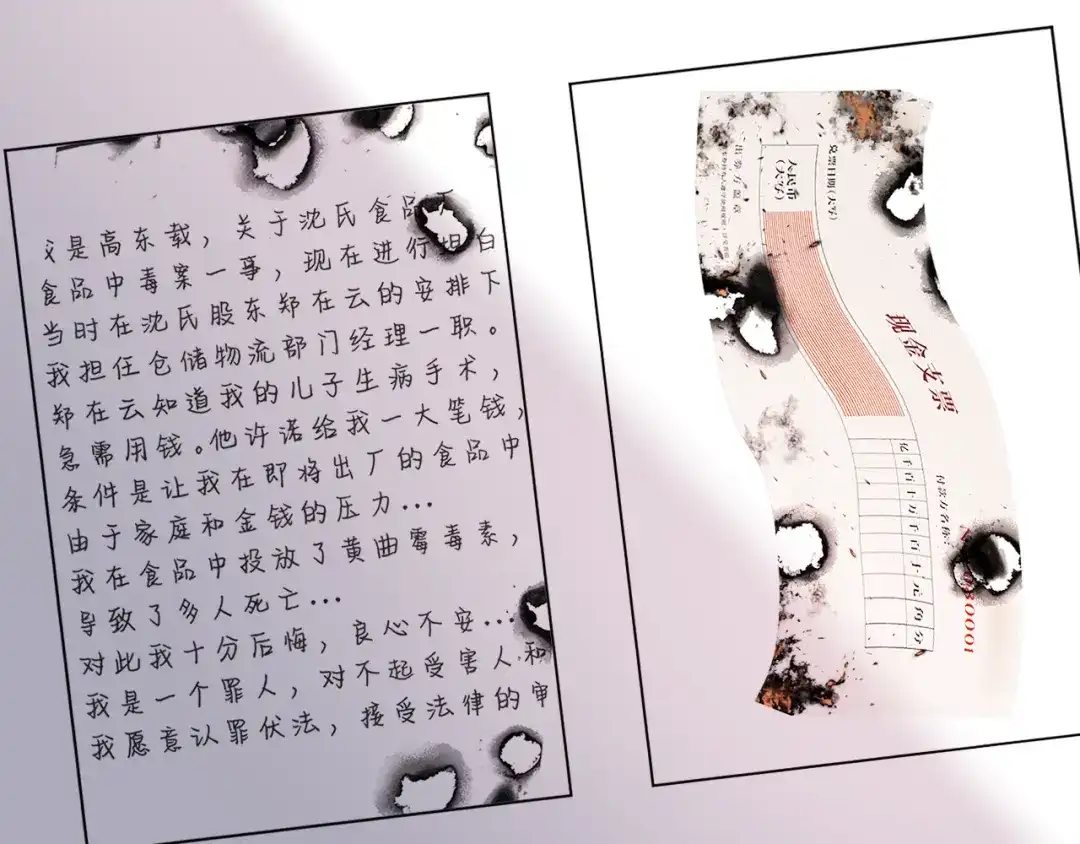 是高东载，关于沈氏食品
食品中毒案一事，现在进行坦白
当时在沈氏股东郑在云的安排下
我担任仓储物流部门经理一职。
郑在云知道我的儿子生病手术，
急需用钱。他许诺给我一大笔钱，
条件是让我在即将出厂的食品中
由于家庭和金钱的压力...
我在食品中投放了黄曲霉毒素，
导致了多人死亡...
对此我十分后悔，良心不安...
我是一个罪人，对不起受害人和
我愿意认罪伏法，接受法律的审
现金支票
兑票日期（大写）
付款方名称：
人民币
（大写）
亿千百十万千百十元角分
出券方盖章